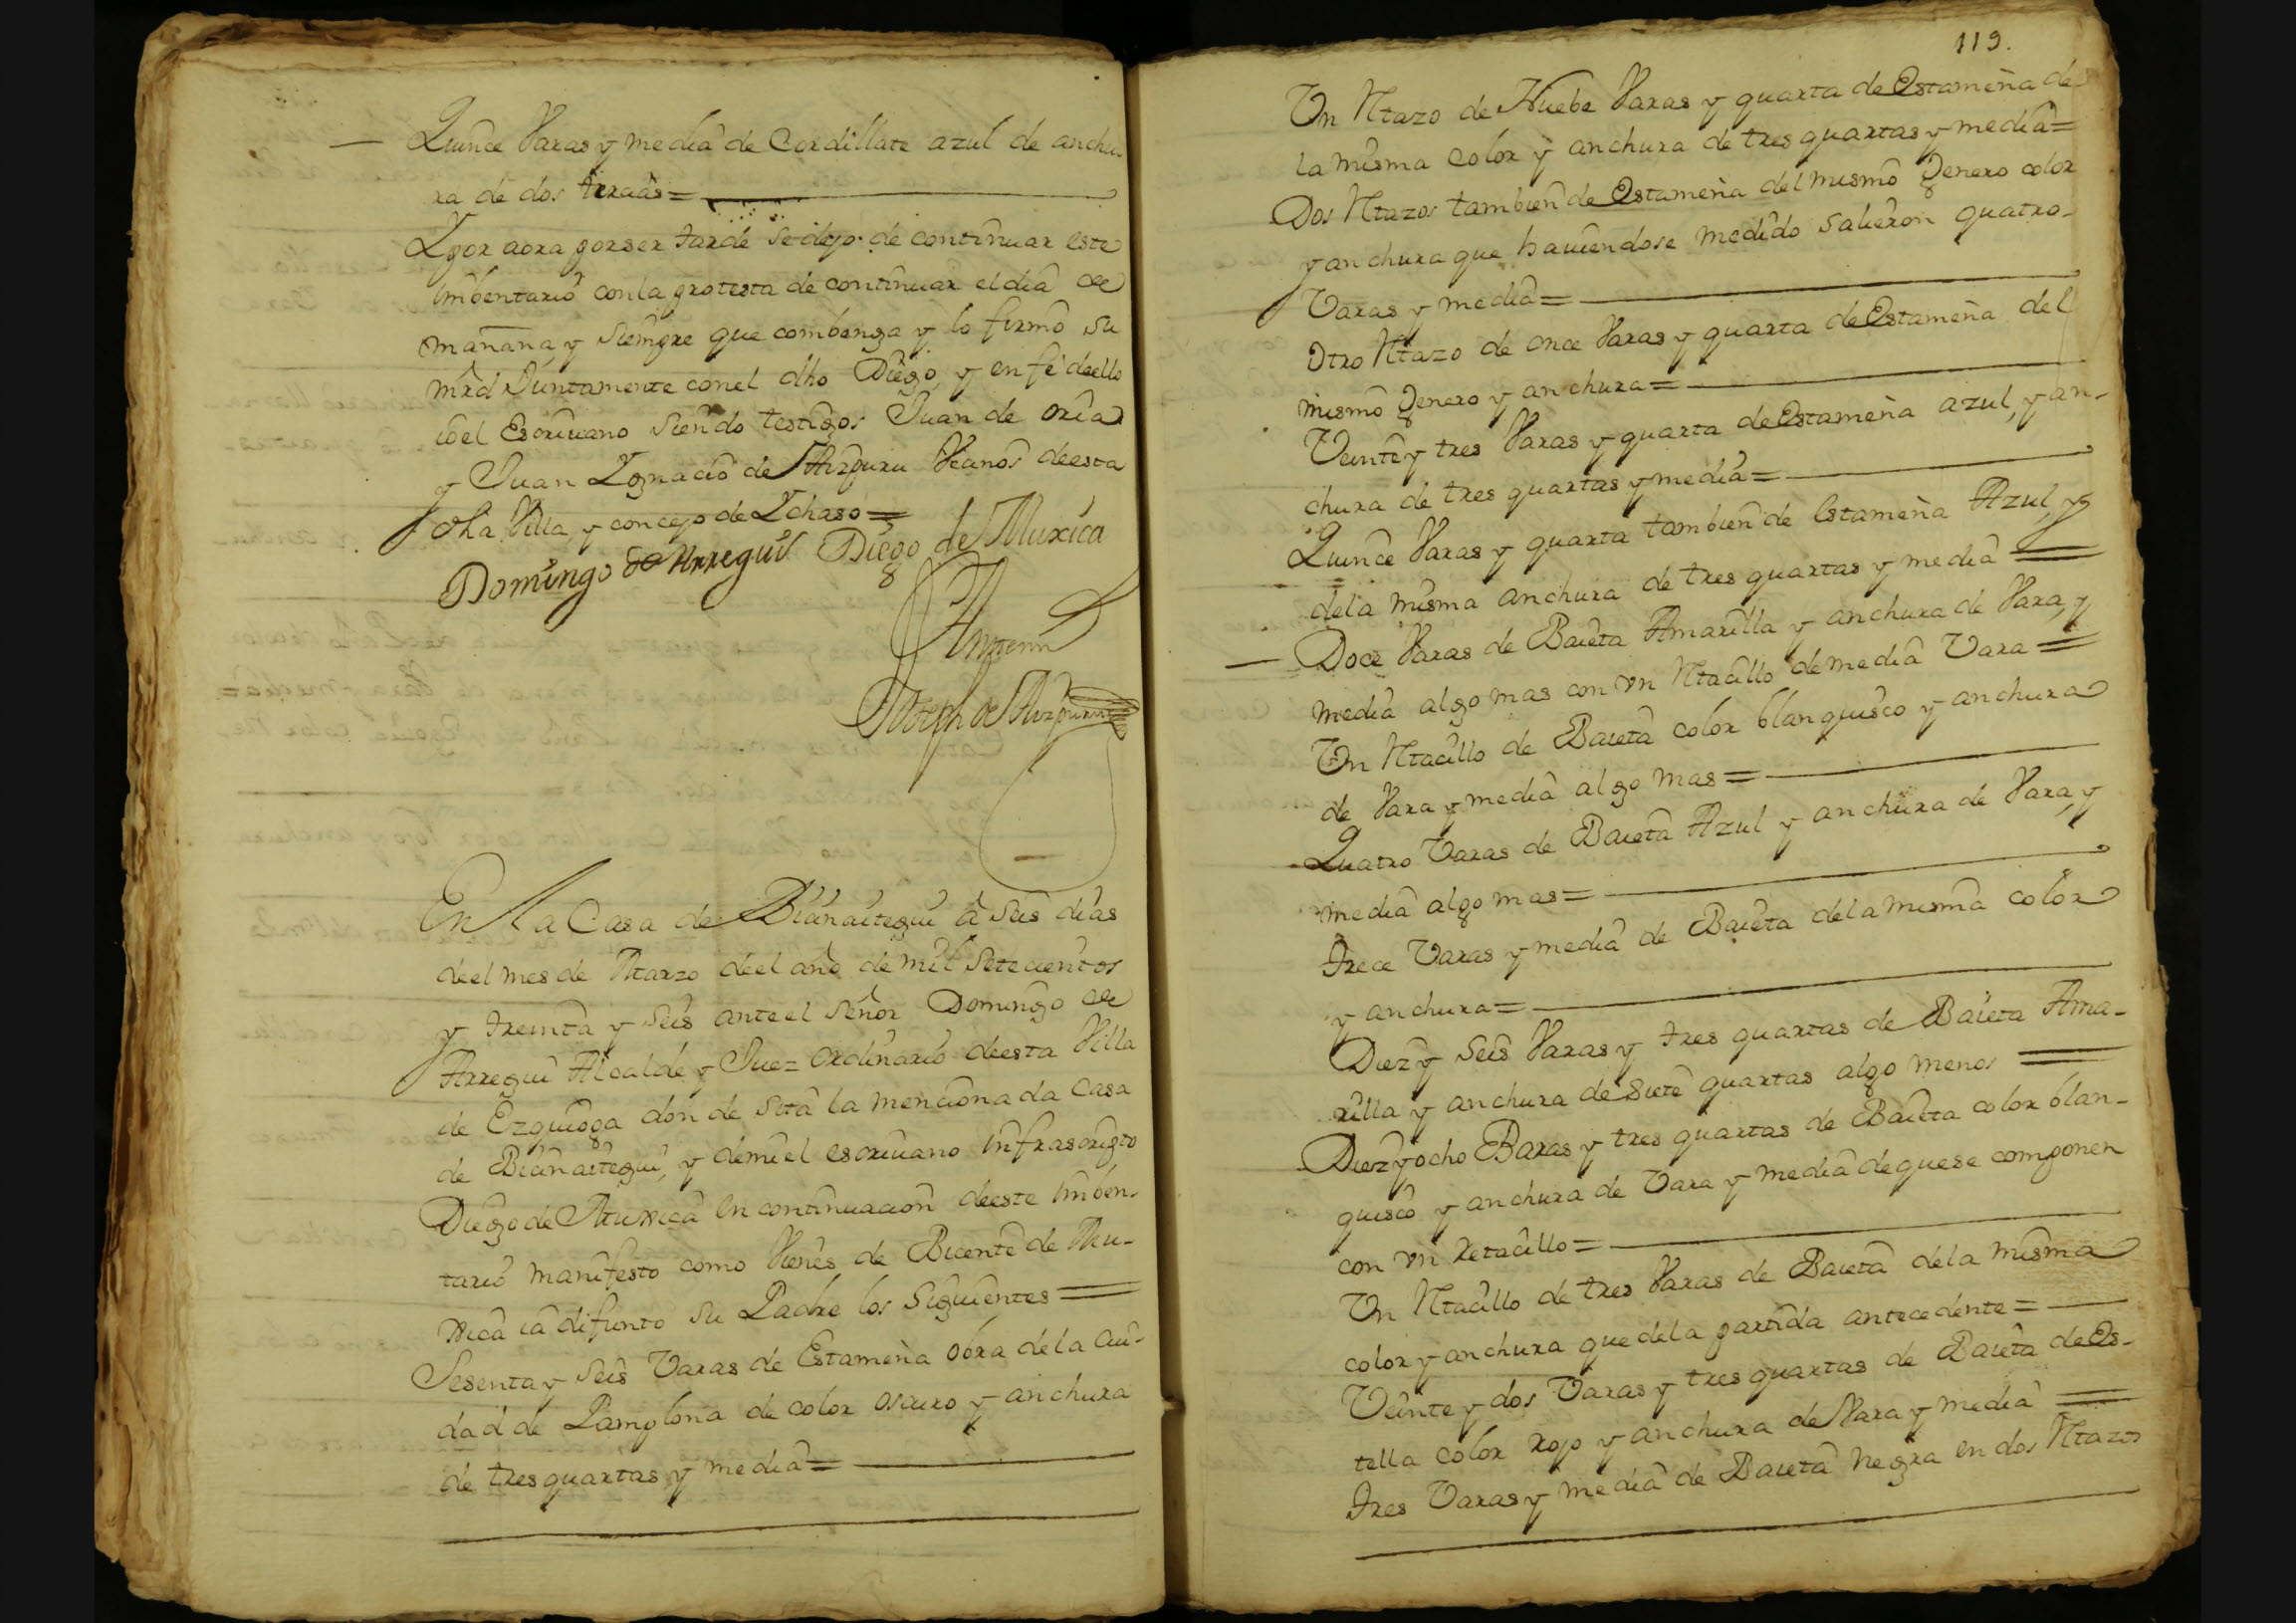 Quince Varas y media de Cordillate azul de anchu-
ra de dos terzias=
Y por aora por ser tarde se dejo de continuar este
imbentario con la protesta de continuar el dia de
mañana, y siempre que combenga y lo firmo su
mrd Juntamente con el dho Diego, y en fe de ello
io el Escriuano siendo testigos Juan de oria
y Juan Ygnacio de Aizpuru Vecinos de esta
dha Villa, y concejo de Ychaso=
Domingo de Arregui Diego de Muxica
Antemi
Joseph de Aizpuru
En la Casa de Bicuñaitegui â seis dias
de el mes de Marzo de el año de mil setecientos
y treinta y seis ante el señor Domingo de
Arregui Alcalde y Juez ordinario de esta Villa
de Ezquioga donde sita la mencionada Casa
de Bicuñaitegui, y de mi el escriuano infrascripto
Diego de Muxica en continuacion de este imben-
tario manifesto como Vienes de Bicente de Mu-
xica ia difunto su Padre los siguientes=
Sesenta y seis Varas de Estameña obra de la ciu-
dad de Pamplona de color oscuro y anchura
de tres quartas y media=
119.
Un Rtazo de Nuebe Varas y quarta de Estameña de
la misma color y anchura de tres quartas y media=
Dos Rtazos tambien de Estameña del mismo Jenero color
y anchura que hauiendose medido salieron quatro
Varas y media=
Otro Rtazo de once Varas y quarta de Estameña del
mismo Jenero y anchura=
Veinte y tres Varas y quarta de Estameña azul, y an-
chura de tres quartas y media=
Quince Varas y quarta tambien de Estameña Azul, y
de la misma anchura de tres quartas y media=
Doce Varas de Baieta Amarilla y anchura de Vara, y
media algo mas con vn Rtacillo de media Vara=
Un Rtacillo de Baieta color blanquisco y anchura
de Vara y media algo mas=
Quatro Varas de Baieta Azul y anchura de Vara, y
media algo mas=
Trece Varas y media de Baieta de la misma color
y anchura=
Diez y seis Varas y tres quartas de Baieta Ama-
rilla y anchura de siete quartas algo menos=
Diez y ocho Baras y tres quartas de Baieta color blan-
quisco y anchura de Vara y media de que se componen
con vn retacillo=
Un Rtacillo de tres Varas de Baieta de la misma
color y anchura que de la partida antecedente=
Veinte y dos Varas y tres quartas de Baieta de Es-
tella color rojo y anchura de Vara y media=
Tres Varas y media de Baieta negra en dos Rtazos